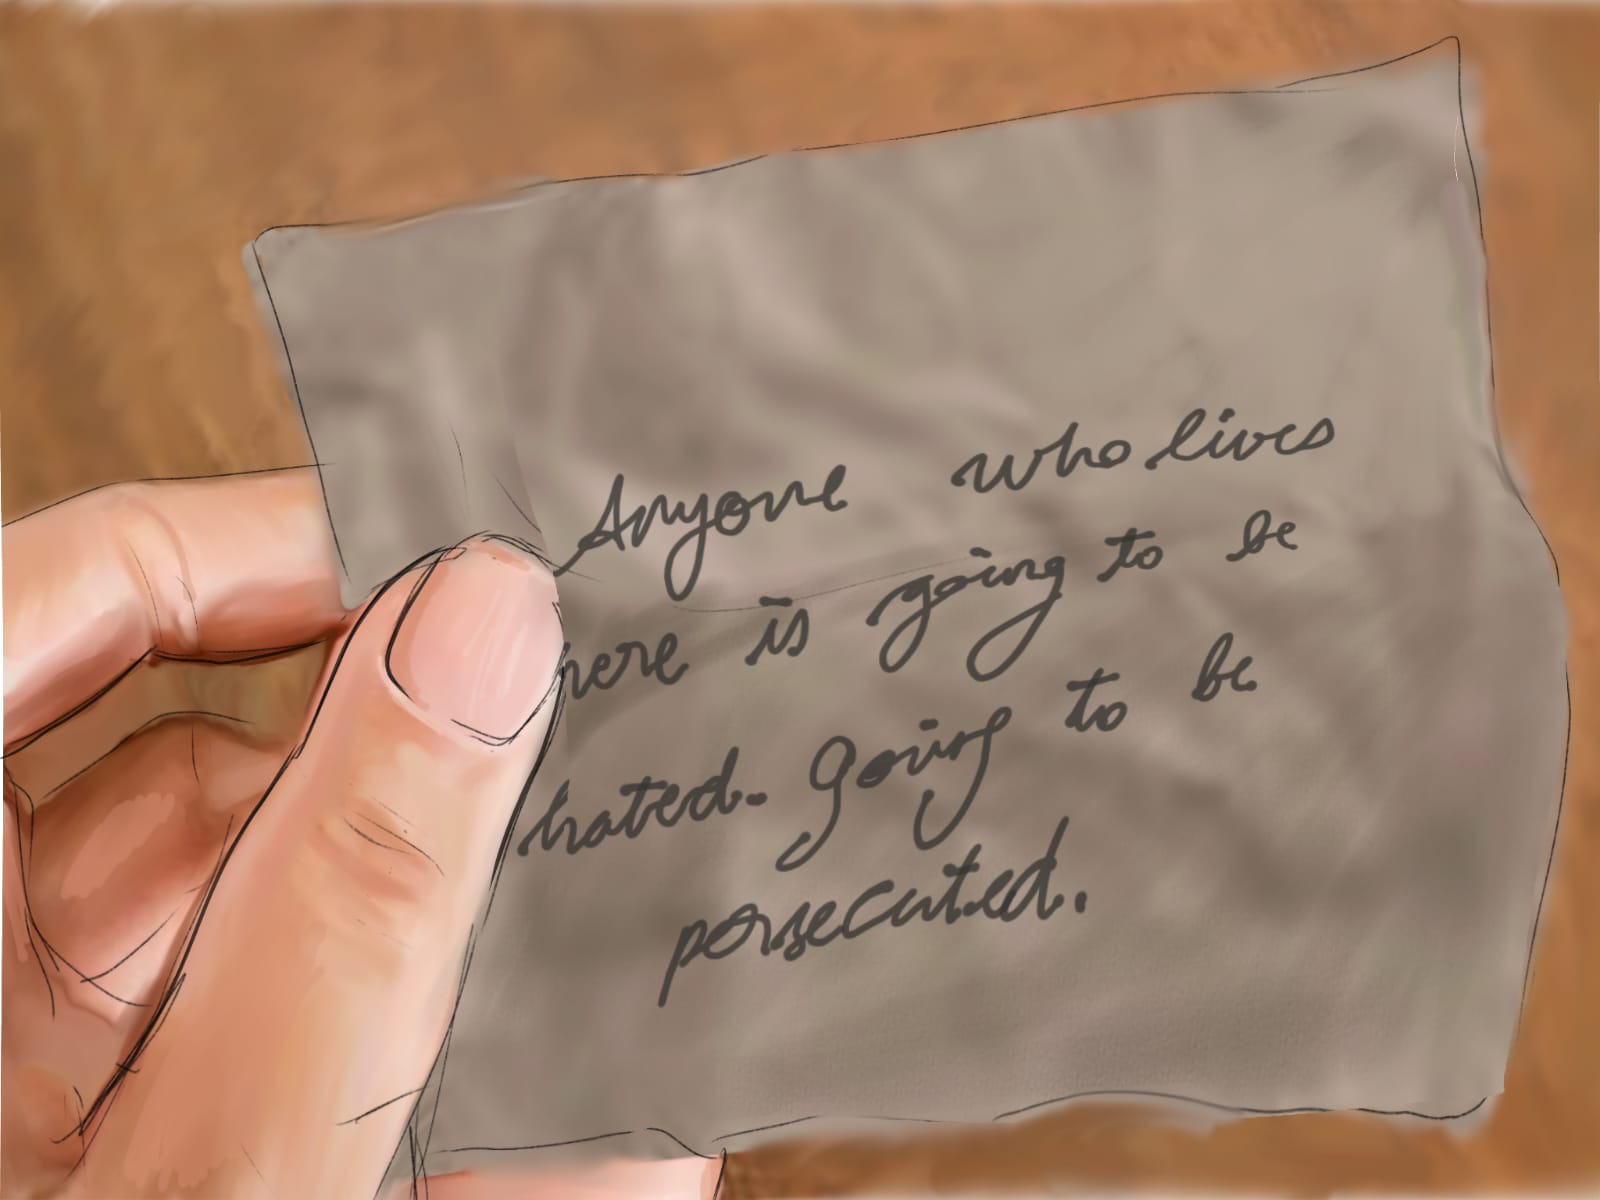 Anyone who lives
here is going to be
hated. Going to be
persecuted.